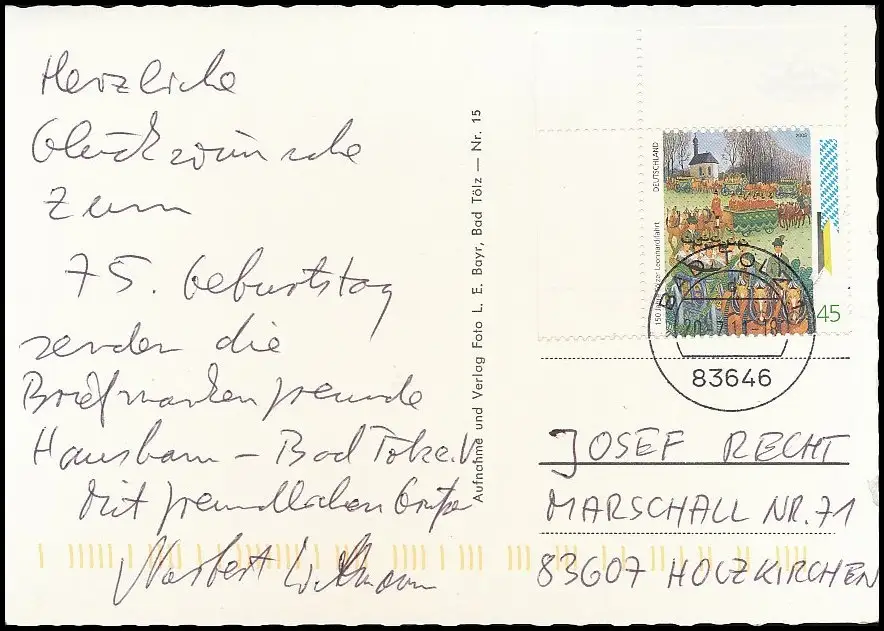 Herzliche
Glückwünsche
Zum
75. Geburtstag
senden die
Briefmarkenfreunde
Hausham - Bad Tölz e.V.
Mit freundlichen Grüßen
Norbert
Aufnahme und Verlag Foto L. E. Bayr, Bad Tölz — Nr. 15
DEUTSCHLAND
2005
150 Jahre Tölzer Leonhardifahrt
45
BAD TÖLZ 1
83646
JOSEF RECHT
MARSCHALL NR. 71
83607 HOLZKIRCHEN